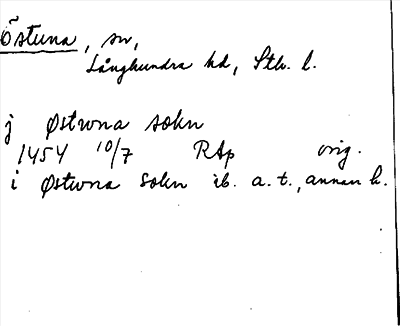 Östuna, sn,
Långhundra hd, Sth. l.
j Østwna sokn
1454 10/7 RAp orig.
i Østwna sokn ib. a. t., annan h.